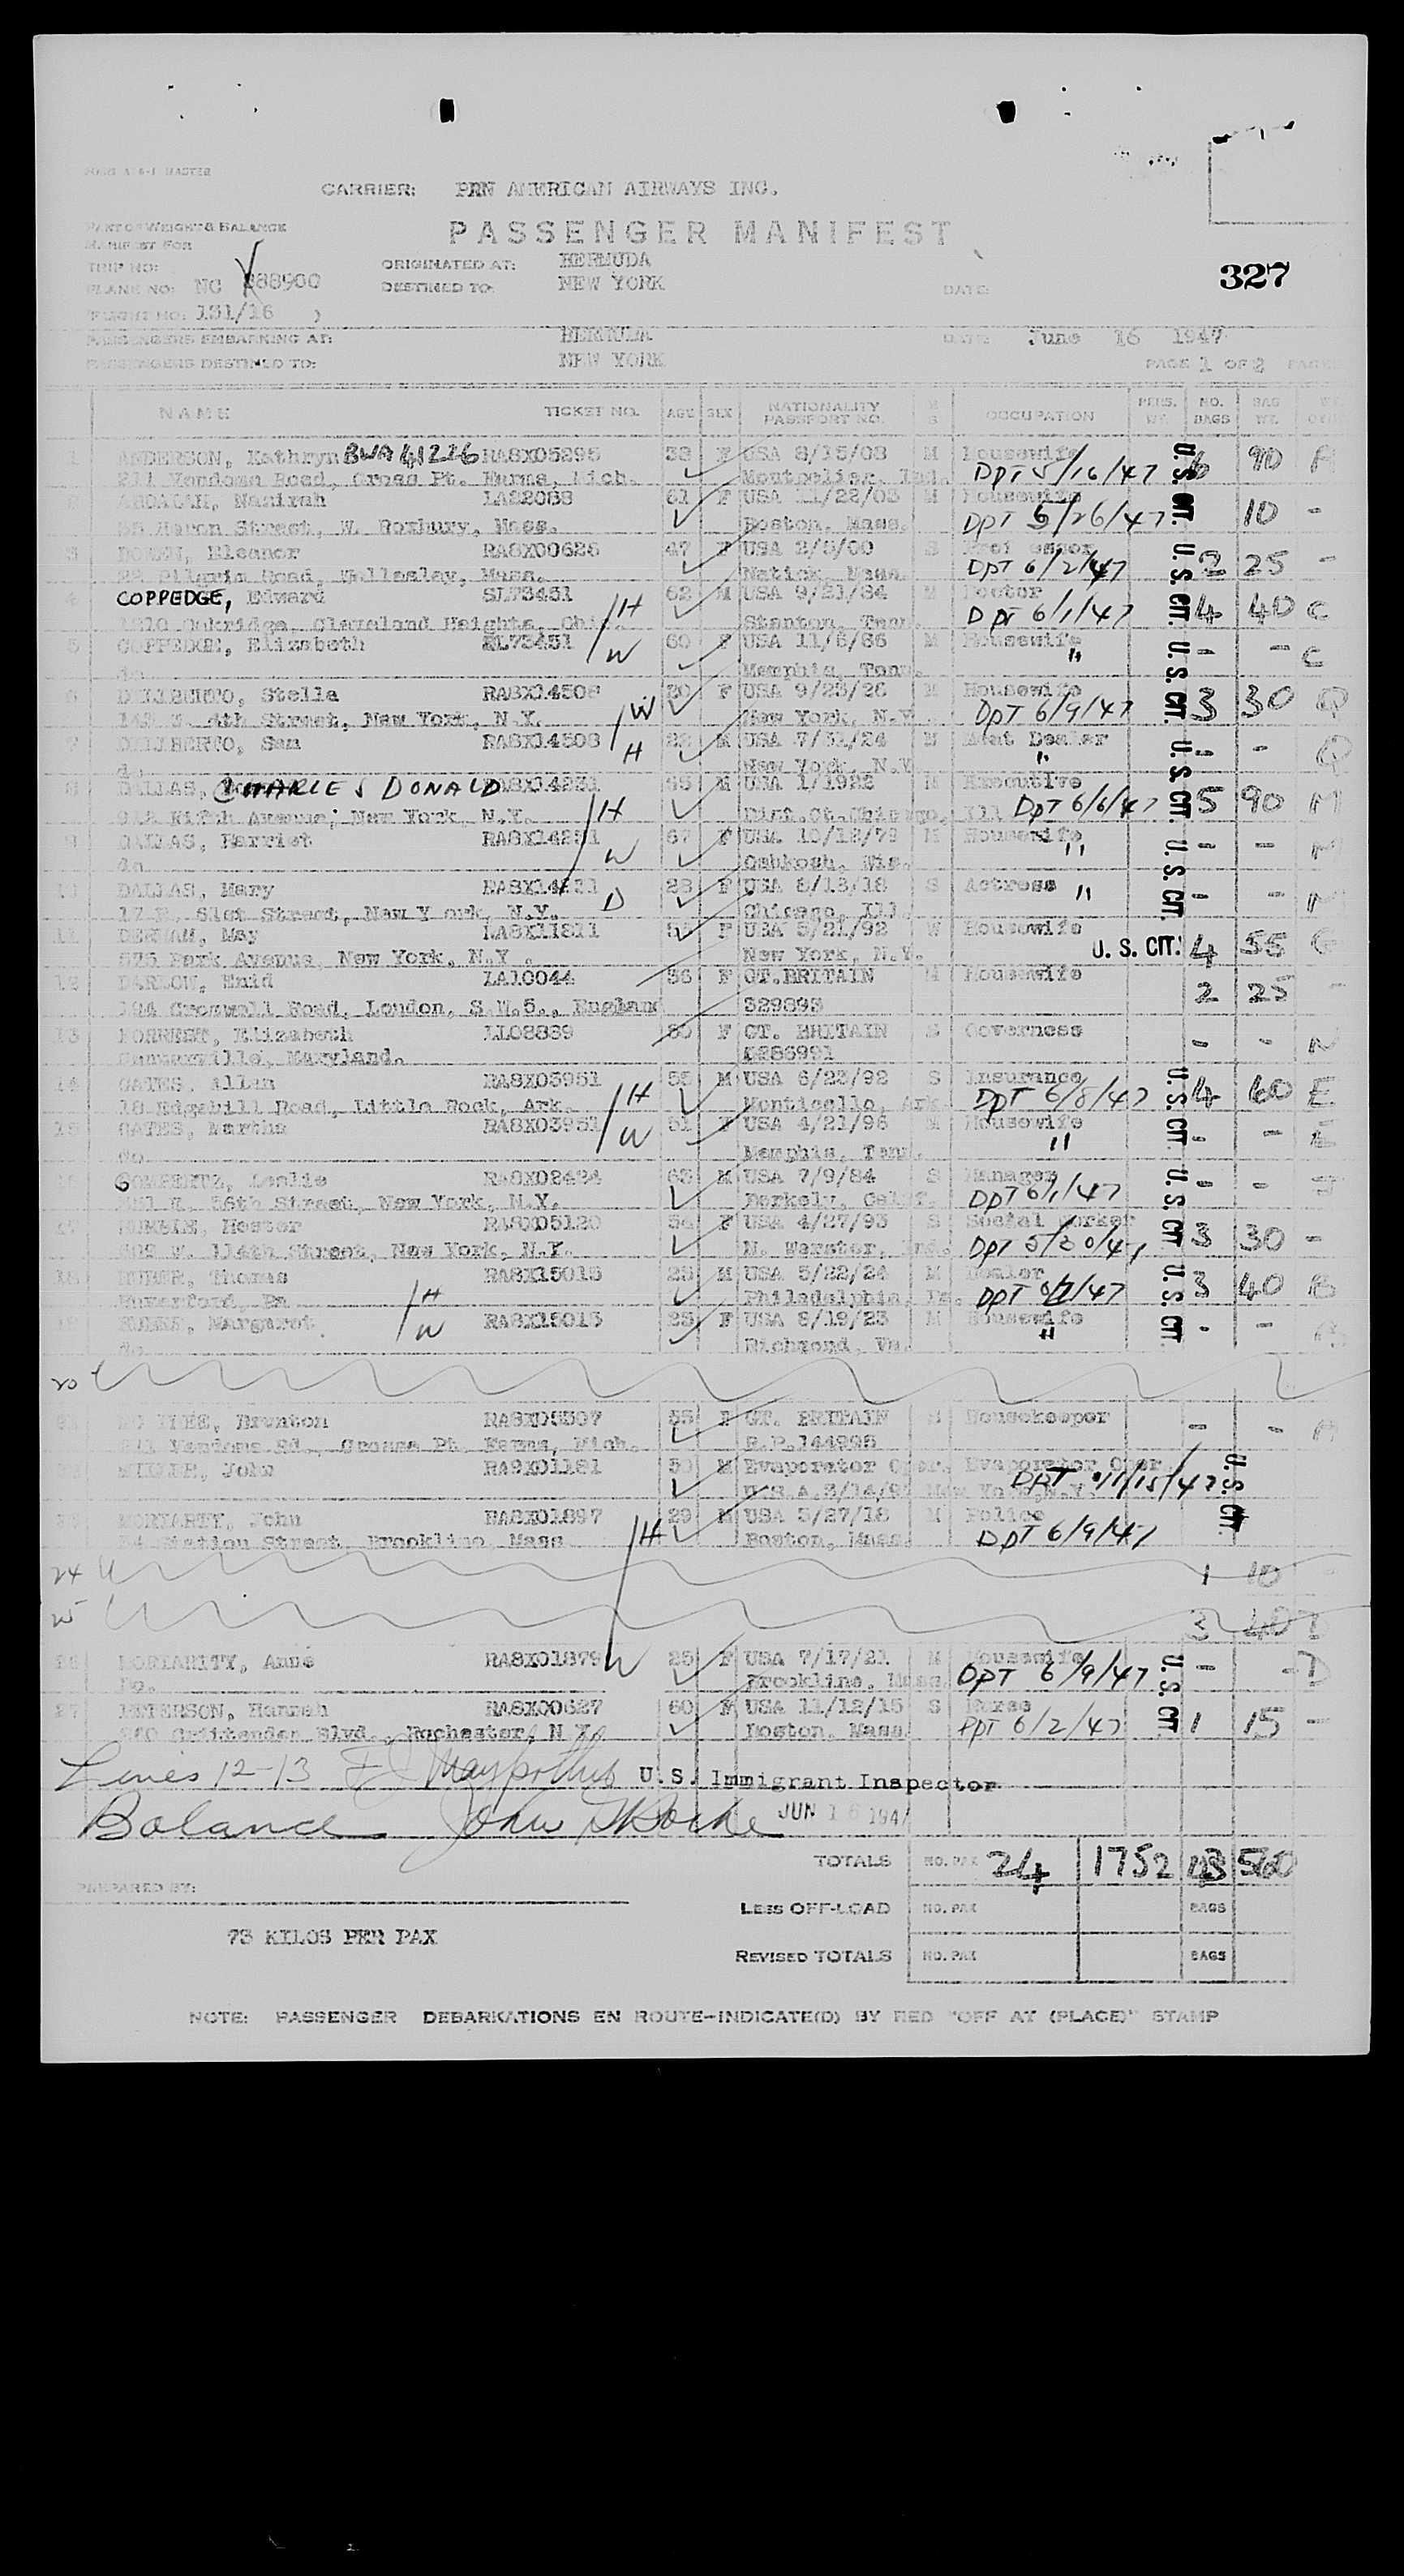 CARRIER: PAN AMERICAN AIRWAYS INC.
PASSENGER MANIFEST
PART OF WEIGHT & BALANCE
MANIFEST FOR
TRIP NO:
PLANE NO: NC 88900
FLIGHT NO: 131/16
ORIGINATED AT: BERMUDA
DESTINED TO: NEW YORK
DATE:
327
PASSENGERS EMBARKING AT: BERMUDA DATE: June 16 1947
PASSENGERS DESTINED TO: NEW YORK PAGE 1 OF 2 PAGES
NAME TICKET NO. AGE SEX NATIONALITY PASSPORT NO. M S OCCUPATION PERS. WT. NO. BAGS BAG WT.
1 ANDERSON, Kathryn BWA 41226 RASX05296 38 F USA 8/15/08 M Housewife U.S. CIT. 6 90 A
211 Vendome Road, Gross Pt. Farms, Mich. Montpelier, Ind. DPT 5/16/47
LA82068 61 F USA 11/22/05 M Housewife U.S. CIT. 10 -
Street, W. Roxbury, Mass. Boston, Mass. DPT 5/26/47
3 Eleanor RASX00626 47 F USA 2/5/00 S Professor U.S. CIT. 2 25 -
22 Pilgrim Road, Wellesley, Mass. Natick, Mass. DPT 6/2/47
4 COPPEDGE, Edward SL73451 62 M USA 9/21/84 M Doctor U.S. CIT. 4 40 C
1810 Oakridge, Cleveland Heights, Ohio. H Stanton, Tenn. DPT 6/1/47
5 COPPEDGE, Elizabeth SL73451 W 60 F USA 11/6/86 M Housewife U.S. CIT. - - C
do Memphis, Tenn. "
6 DILIBERTO, Stella RASX14508 W 20 F USA 9/23/26 M Housewife U.S. CIT. 3 30 Q
4th Street, New York, N.Y. New York, N.Y. DPT 6/9/47
7 DILIBERTO, Sam RASX14508 H 22 M USA 7/31/24 M Meat Dealer U.S. CIT. - - Q
do New York, N.Y. "
8 DALLAS, CHARLES DONALD RASX14231 65 M USA 1/1922 M Executive U.S. CIT. 5 90 M
912 Fifth Avenue, New York, N.Y. H Dist.Ct.Chicago, Ill DPT 6/6/47
9 DALLAS, Harriet RASX14231 67 F USA 10/18/79 M Housewife U.S. CIT. - - M
do W Oshkosh, Wis. "
10 DALLAS, Mary RASX14231 28 F USA 8/13/18 S Actress U.S. CIT. - - M
17 E. 81st Street, New York, N.Y. D Chicago, Ill. "
11 May LASX11811 F USA 5/21/92 W Housewife
575 Park Avenue, New York, N.Y. New York, N.Y. U.S. CIT. 4 55 G
12 DARLOW, Enid LA10044 36 F GT.BRITAIN M Housewife
194 Cromwell Road, London, S.W.5., England 329893 2 25 -
13 FORREST, Elizabeth LL02889 F GT. BRITAIN S Governess
Maryland. C286991 - - N
14 GATES, Allan RASX03951 H 55 M USA 6/23/92 S Insurance U.S. CIT. 4 60 E
18 Edgehill Road, Little Rock, Ark. Monticello, Ark DPT 6/8/47
15 GATES, Martha RASX03951 W 51 F USA 4/21/96 M Housewife U.S. CIT. - - E
do Memphis, Tenn. "
16 GOMPERTZ, Leslie RASX02484 63 M USA 7/9/84 S Manager U.S. CIT. - -
56th Street, New York, N.Y. Berkely, Calif. DPT 6/1/47
17 Hester RASX05120 54 F USA 4/27/93 S Social Worker U.S. CIT. 3 30 -
609 W. 114th Street, New York, N.Y. Ind. DPT 5/30/47
18 HUBER, Thomas RASX15015 23 M USA 5/22/24 M Dealer U.S. CIT. 3 40 B
Rutherford, Pa H Philadelphia, Pa. DPT 6/7/47
19 HUBER, Margaret RASX15015 W 23 F USA 8/19/23 M Housewife U.S. CIT. - - B
do Richmond, Va. "
20
21 Brunton RASX05307 55 F GT. BRITAIN Housekeeper - - A
211 Vendome Rd., Grosse Pt. Farms, Mich. R.P.144995
John RASX01181 50 M Evaporator Oper. Evaporator Oper. U.S. CIT.
New York, N.Y. DPT 11/15/47
MORIARTY, John RASX01897 29 M USA 5/27/18 M Police
Station Street, Brookline, Mass H Boston, Mass. DPT 6/9/47
24 1 10
25 3 40 D
26 MORIARITY, Anne RASX01879 W 25 F USA 7/17/21 M Housewife U.S. CIT. - - D
Do. Brookline, Mass. DPT 6/9/47
27 PETERSON, Hannah RASX00627 60 F USA 11/12/15 S Nurse U.S. CIT. 1 15 -
Crittenden Blvd., Rochester, N.Y. Boston, Mass. PPT 6/2/47
Lines 12-13 U.S. Immigrant Inspector
Balance John JUN 16 1947
TOTALS NO. PAX 24 1752 560
PREPARED BY:
LESS OFF-LOAD NO. PAX BAGS
73 KILOS PER PAX
REVISED TOTALS NO. PAX BAGS
NOTE: PASSENGER DEBARKATIONS EN ROUTE-INDICATE(D) BY RED "OFF AT (PLACE)" STAMP